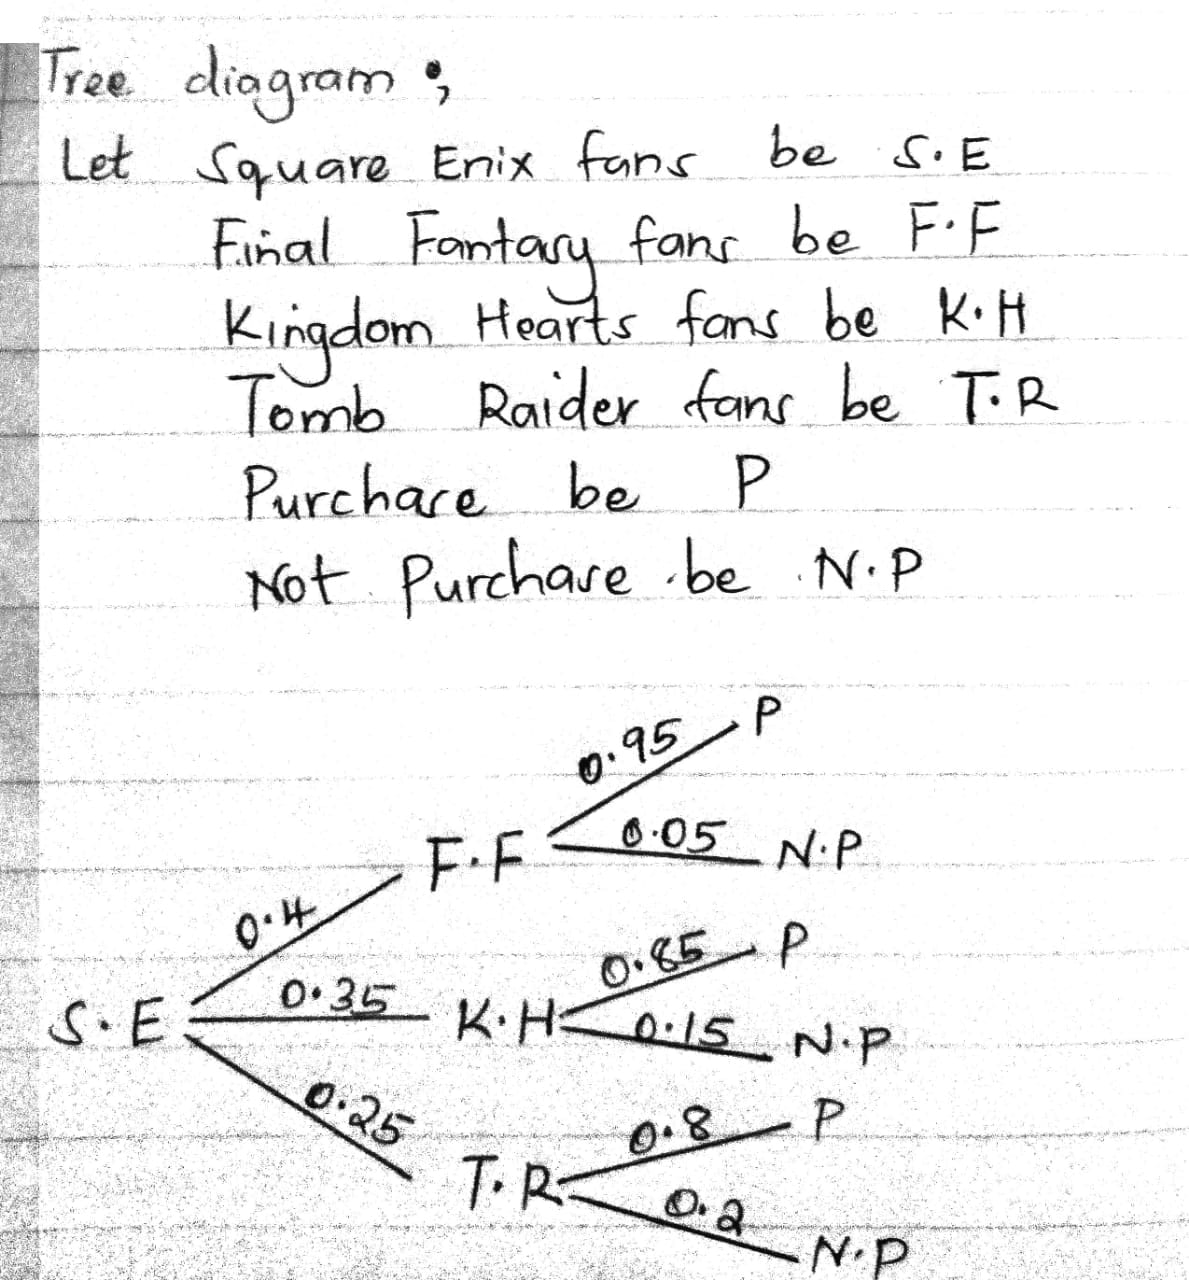 Tree diagram ;
Let Square Enix fans be S.E
Final Fantasy fans be F.F
Kingdom Hearts fans be K.H
Tomb Raider fans be T.R
Purchase be P
Not Purchase be N.P
0.95 P
F.F 0.05 N.P
0.4
0.85 P
S.E 0.35 K.H 0.15 N.P
0.25
0.8 P
T.R 0.2
N.P